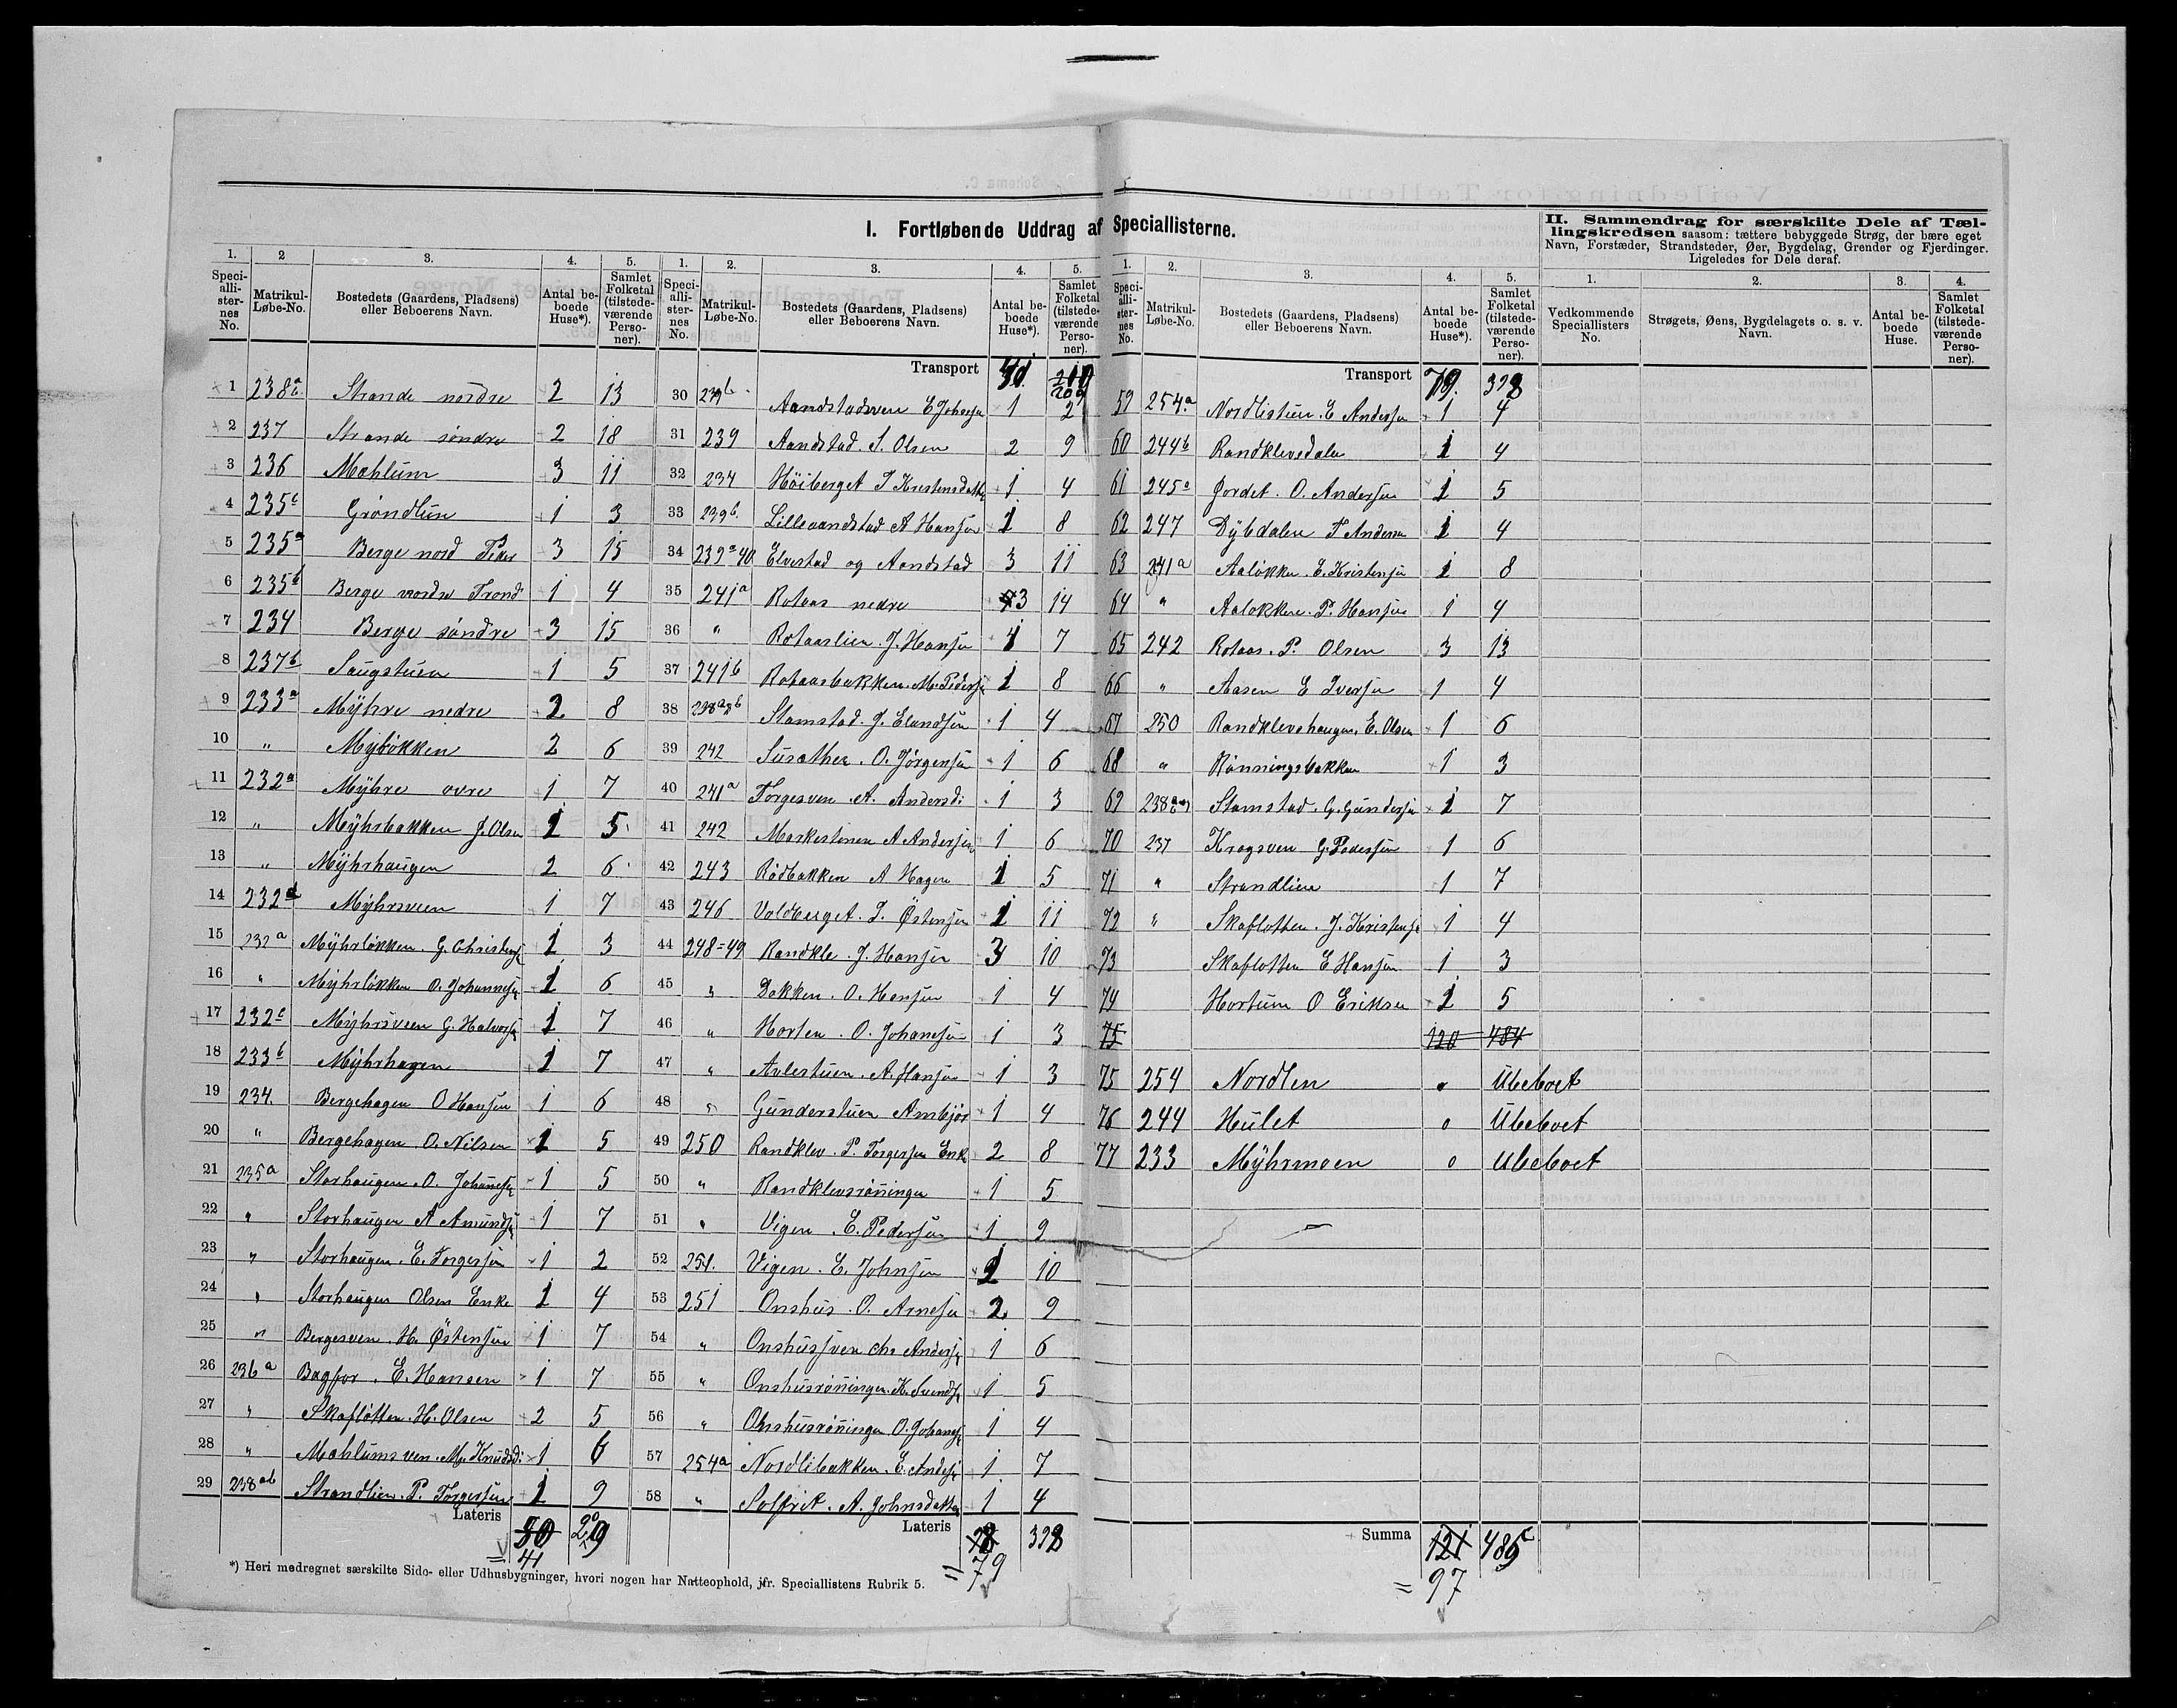 I. Fortløbende Uddrag af Speciallisterne.
II. Sammendrag for særskilte Dele af Tællingskredsen saasom: tættere bebyggede Strøg, der bære eget Navn, Forstæder, Strandsteder, Øer, Bygdelag, Grender og Fjerdinger. Ligeledes for Dele deraf.
1. 2 3. 4. 5.
Specialli-sternes No. Matrikul-Løbe-No. Bostedets (Gaardens, Pladsens) eller Beboerens Navn. Antal beboede Huse*). Samlet Folketal (tilstedeværende Personer).
1 238a Strande nordre 2 13
2 237 Strande søndre 2 18
3 236 Mæhlum 3 11
4 235c Grøndlien 1 3
5 235a Berge nord Peder 3 15
6 235b Berge nordre Trond 1 4
7 234 Berge søndre 3 15
8 237b Saugstuen 1 5
9 233a Mÿhre nedre 2 8
10 " Mÿløkken 2 6
11 232a Mÿhre øvre 1 7
12 " Mÿhrbakken J. Olsen 1 5
13 " Mÿhrhaugen 2 6
14 232d Mÿhrsveen 1 7
15 232a Mÿhrløkken G. Christens 1 3
16 " Mÿhrløkken O. Johannes 1 6
17 232c Mÿhrsveen G. Halvors 1 7
18 233b Mÿhrhagen 1 7
19 234. Bergehagen O Hansen 1 6
20 " Bergehagen O. Nilsen 1 5
21 235a Storhaugen O. Johannes 1 5
22 " Storhaugen A Amunds 1 7
23 " Storhaugen E. Torgersen 1 2
24 " Storhaugen Olsen Enke 1 4
25 " Bergesven H. Østensen 1 7
26 236a Bagfor. E. Hansen 1 7
27 " Skafløtten H. Olsen 2 5
28 " Mæhlumsven M. Knudsd: 1 6
29 238ab Strandlien P. Torgersen 1 9
Lateris 50 209
= 41
1. 2. 3. 4. 5.
Specialli-sternes No. Matrikul-Løbe-No. Bostedets (Gaardens, Pladsens) eller Beboerens Navn. Antal beboede Huse*). Samlet Folketal (tilstedeværende Personer).
Transport 41. 210
209
30 239b Aandstadsven E Johnsen 1 2
31 239 Aandstad. S. Olsen 2 9
32 234 Høiberget I Kristensdatter 1 4
33 239b. Lilleaandstad A Hansen 1 8
34 239a 40 Elvestad og Aandstad 3 11
35 241a Rotaas nedre 3 14
36 " Rotaaslien J. Hansen 1 7
37 241b Rotaasbakken M. Peders 1 8
38 238ab Stamstad J. Elandsen 1 4
39 242 O. Jørgensen 1 6
40 241a Torgesven A. Andersd: 1 3
41 242 A Andersen 1 6
42 243 Rødbakken A Hagen 1 5
43 246 Voldberget. Østensen 1 11
44 248=49 Randkle J. Hansen 3 10
45 " Dokken. O. Hansen 1 4
46 " Horten. O. Johansen 1 3
47 " A. Hansen 1 3
48 " Gunderstuen Ambjør 1 4
49 250 Randklev. P. Torgersen Enk 2 8
50 " Randklevsrøningen 1 5
51 " Vigen E. Pedersen 1 9
52 251. Vigen. E. Johnsen 1 10
53 251 Onshus O. Arnesen 2 9
54 " Onshussven Chr Anders 1 6
55 " Onshusrøningen K. Svends 1 5
56 " Onshusrøningen O. Johans 1 4
57 254a Nordlibakken E. Anders 1 7
58 " A. Johnsdatter 1 4
Lateris 328
= 79
1. 2. 3. 4. 5.
Specialli-sternes No. Matrikul-Løbe-No. Bostedets (Gaardens, Pladsens) eller Beboerens Navn. Antal beboede Huse*). Samlet Folketal (tilstedeværende Personer).
Transport 79. 398
59 254a Nordlistuen. E Andersen 1 4
60 244b Randklevsdalen 1 4
61 245a Jordet. O. Andersen 1 5
62 247 Dÿbdalen T Andersen 1 4
63 241a Aaløkken E. Kristensen 1 8
64 " Aaløkken P. Hansen 1 4
65 242 Rotaas. P. Olsen 3 13
66 " Aasen E Iversen 1 4
67 250 Randklevshaugen. E. Olsen 1 6
68 " Rønningsbakken 1 3
69 238 Stamstad. G. Gundersen 1 7
70 237 Krogsven G. Pedersen 1 6
71 " Strandlien 1 7
72 " Skafløtten J. Kristens 1 4
73 Skafløtten E Hansen 1 3
74 Hortum O Eriksen 1 5
75 120 484
75 254 Nordlen " Ubeboet
76 244 Hulet 0 Ubeboet
77 233 Mÿhrmoen 0 Ubeboet
Summa 121 485
= 97
1. 2. 3. 4.
Vedkommende Speciallisters No. Strøgets, Øens, Bygdelagets o. s. v. Navn. Antal beboede Huse. Samlet Folketal (tilstedeværende Personer).
*) Heri medregnet særskilte Side- eller Udhusbygninger, hvori nogen har Natteophold, jfr. Speciallistens Rubrik 5.